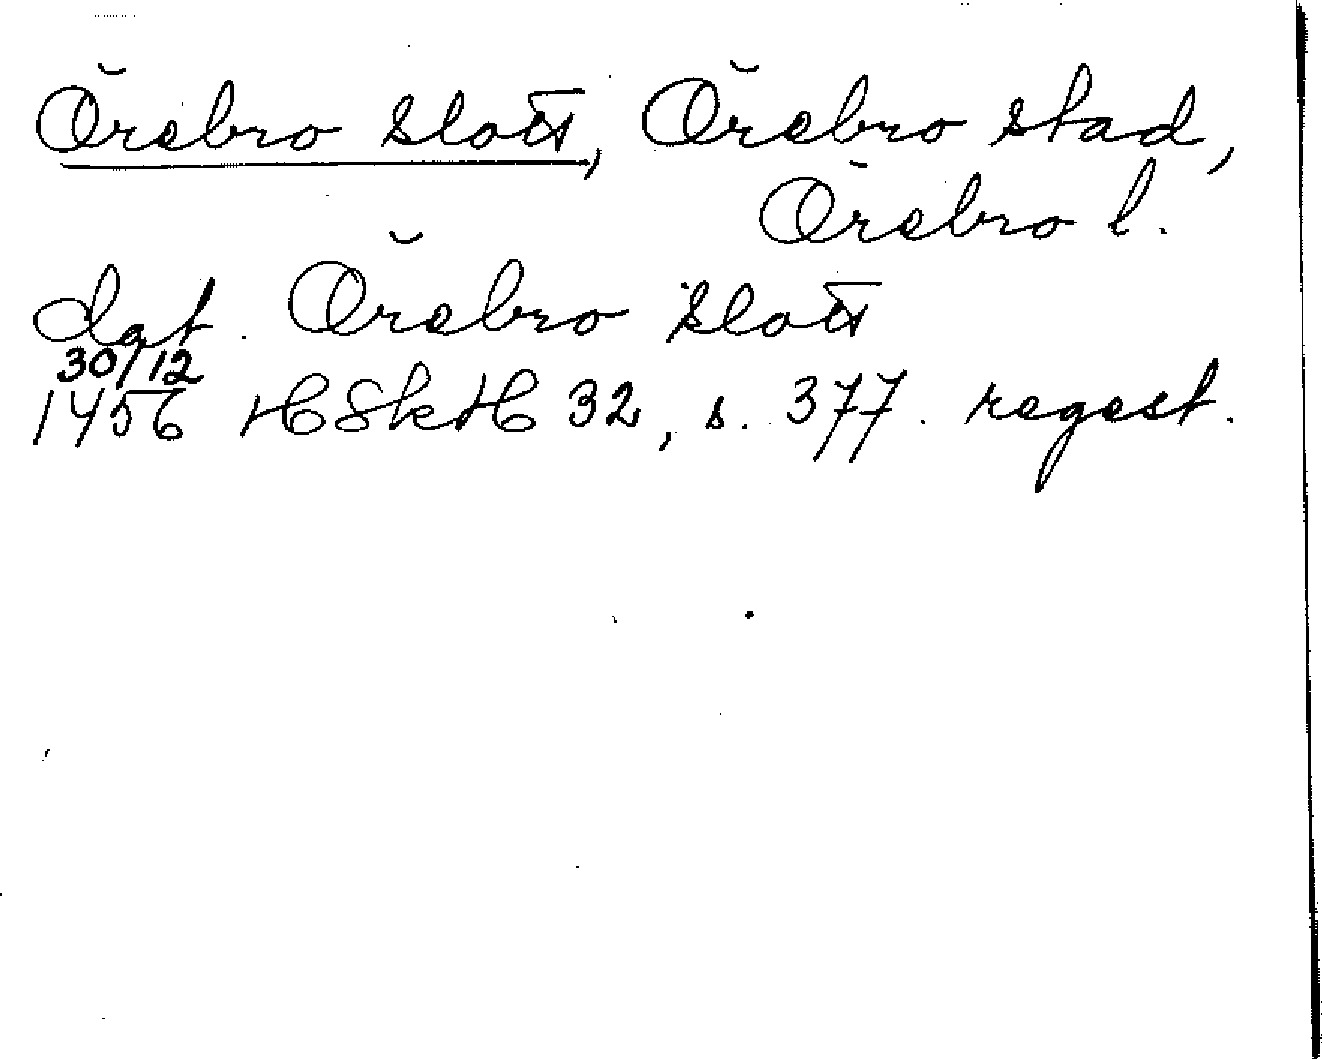 Örebro slott, Örebro stad,
Örebro l.
dat. Örebro slott
30/12
1456 HSkH 32, s. 377. regest.